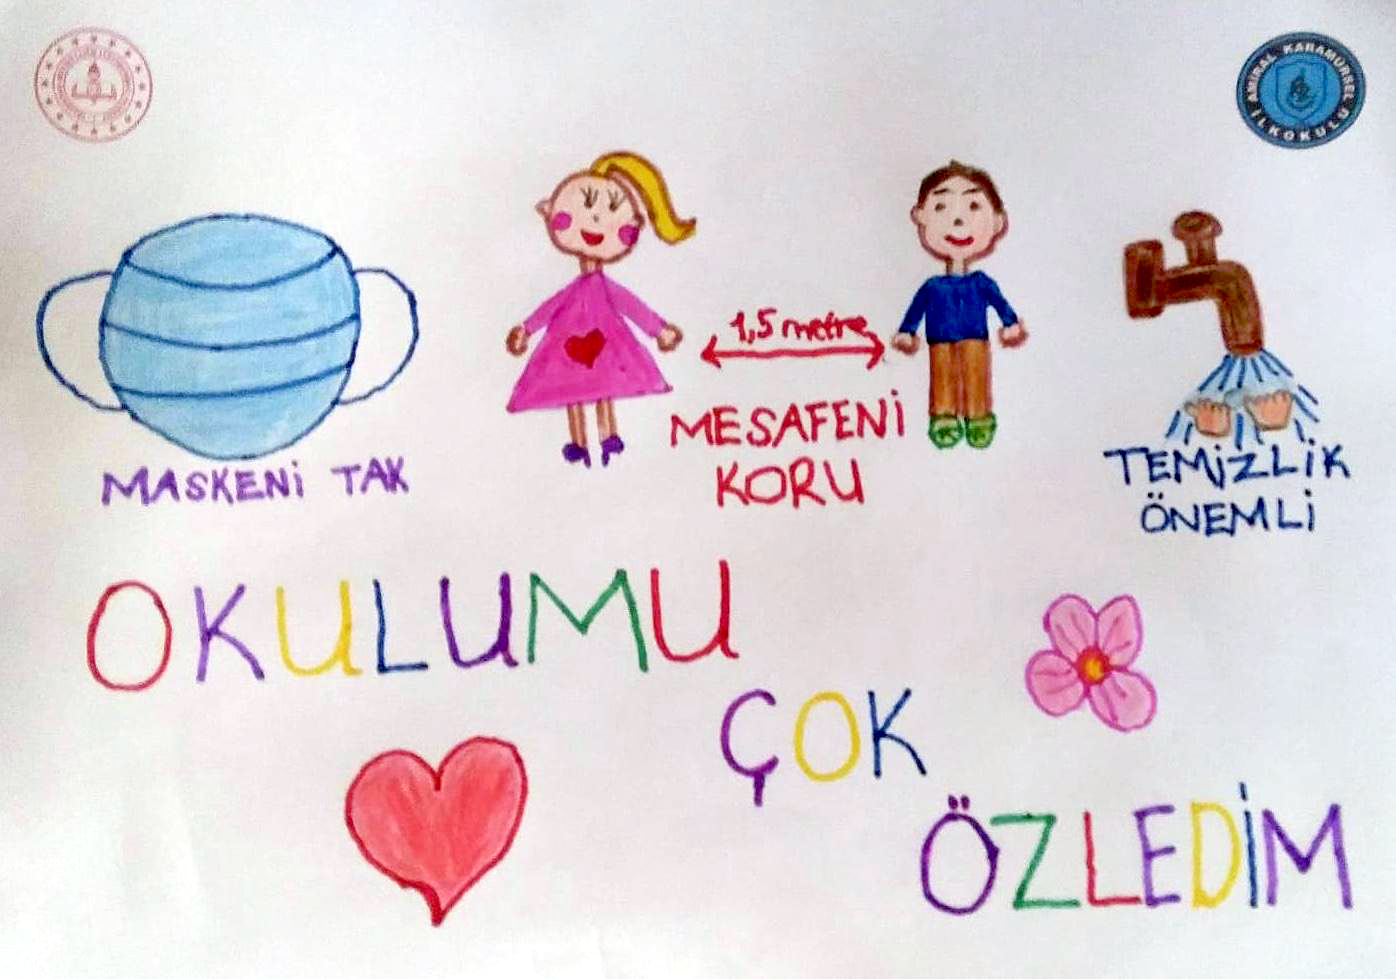 AMİRAL KARAMÜRSEL
İLKOKULU
1,5 metre
MASKENİ TAK
MESAFENİ
KORU
TEMİZLİK
ÖNEMLİ
OKULUMU
ÇOK
ÖZLEDİM